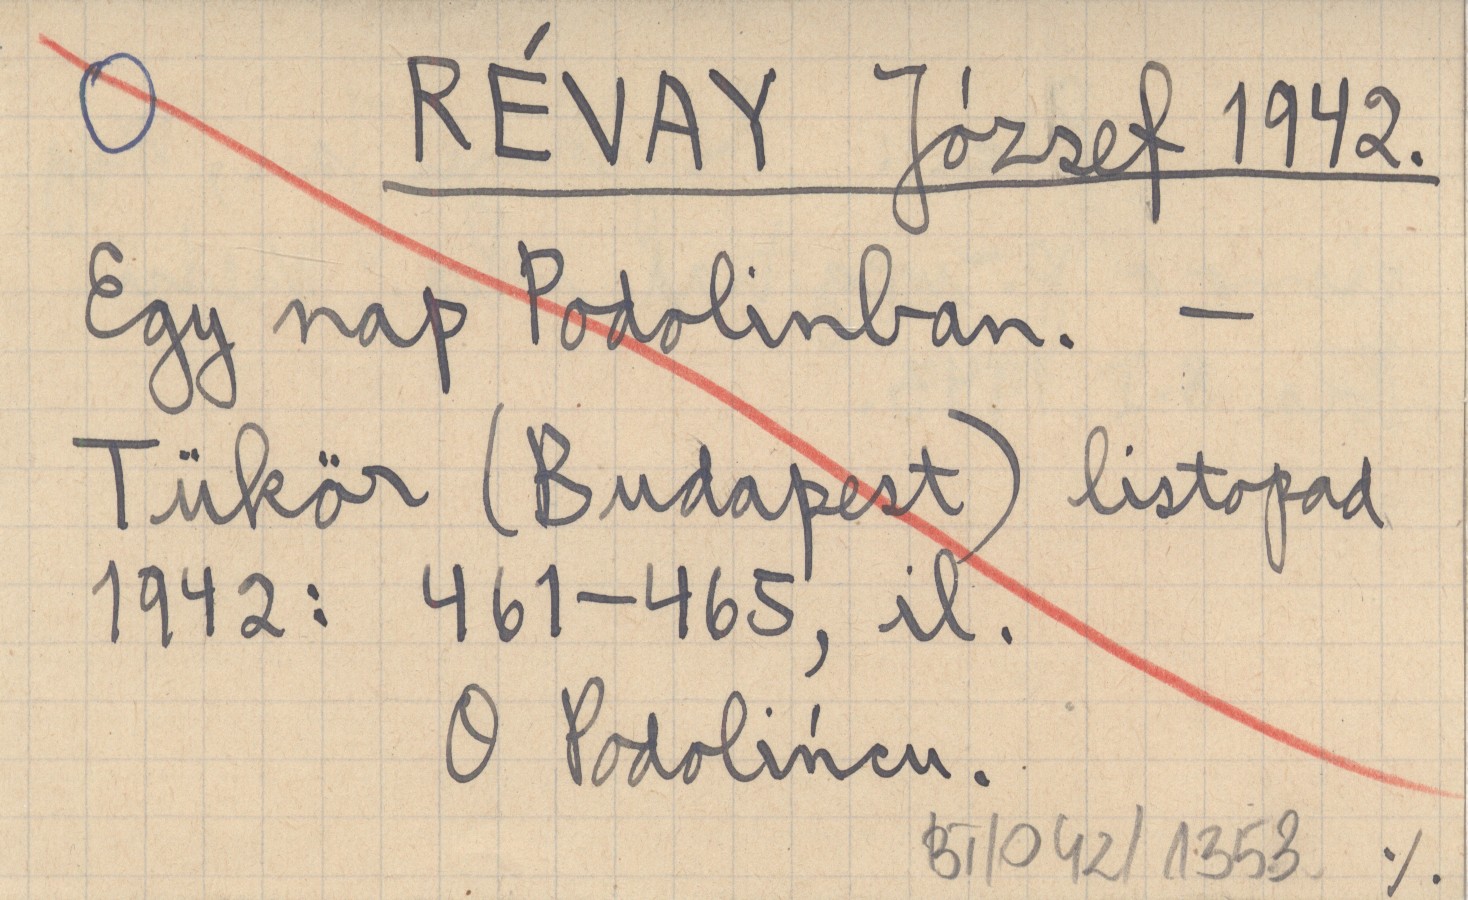 RÉVAY József 1942.
Egy nap Podolinban. —
Tükör (Budapest) listopad
1942: 461—465, il.
O Podolińcu.
BT/042/1353 ·/.